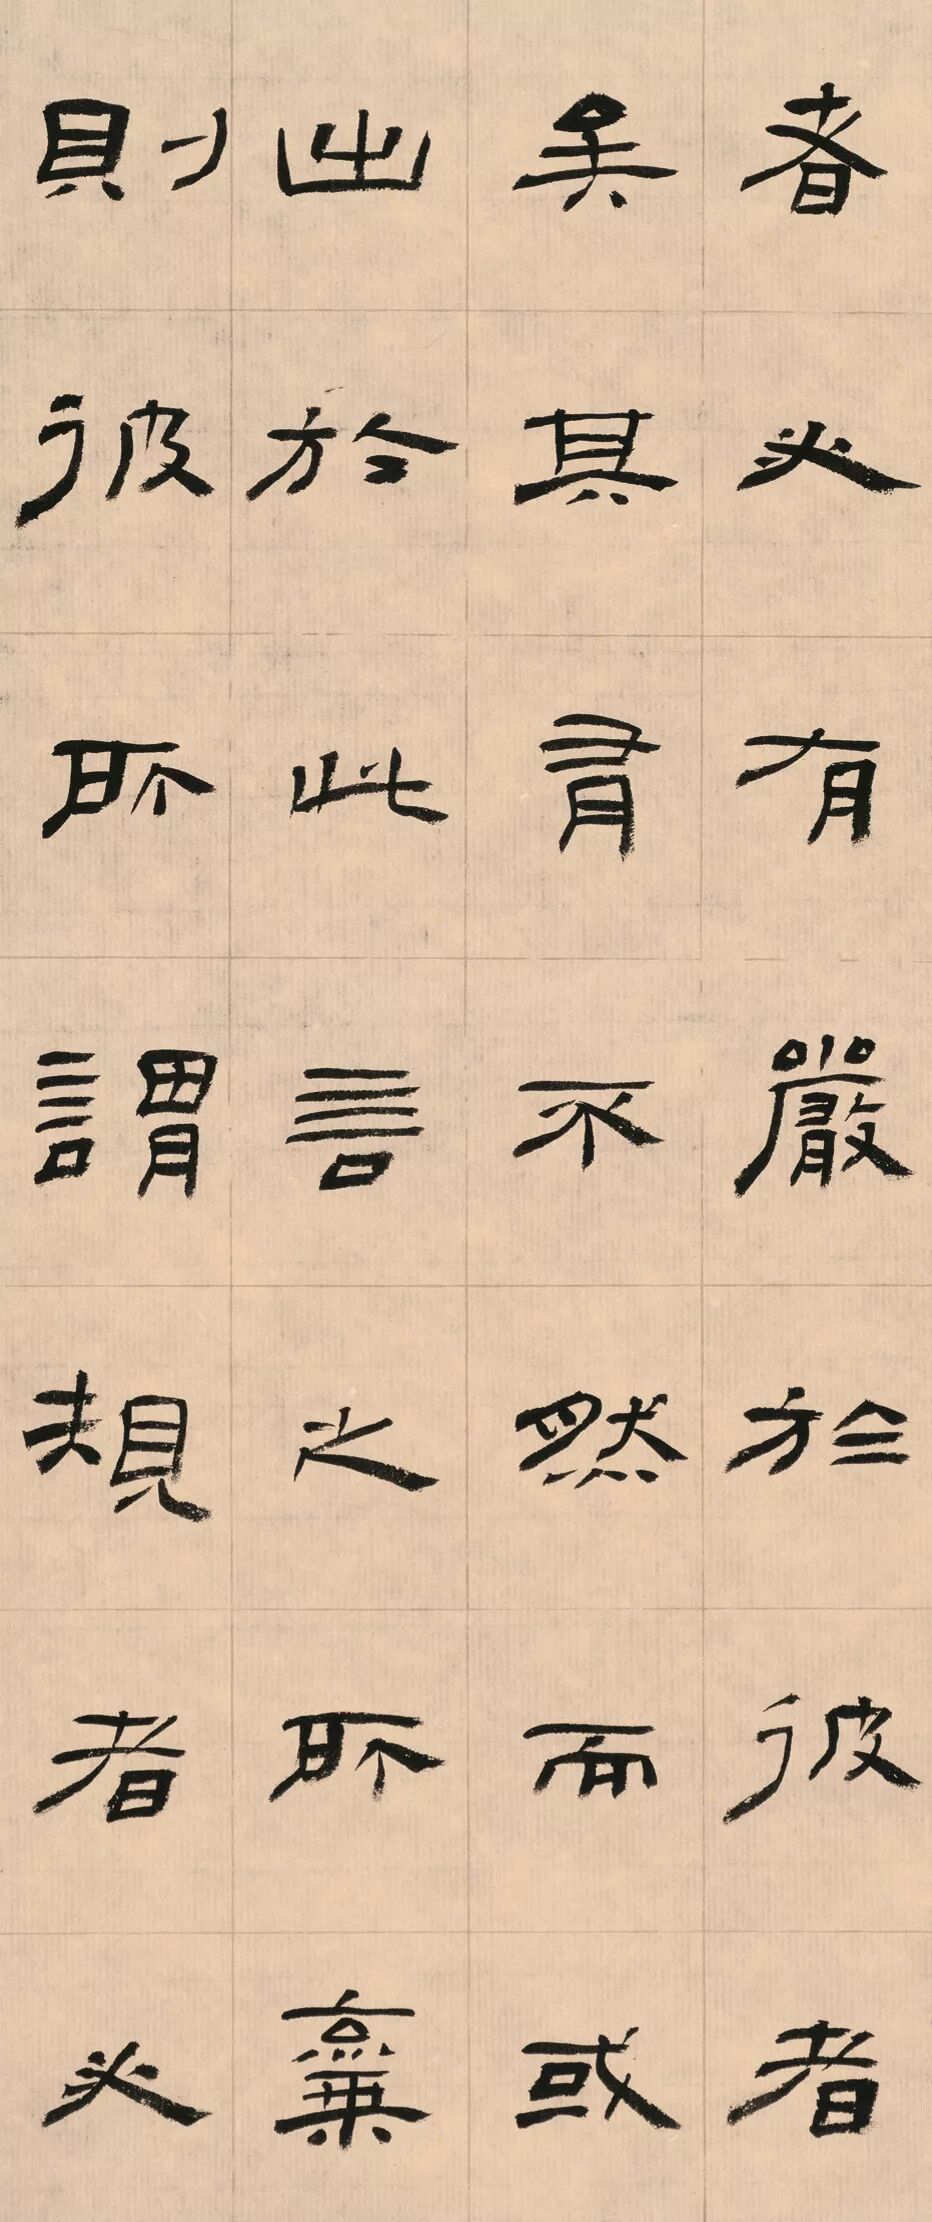 者必有嚴於彼者
矣其有不然而或
出於此言之所棄
則彼所謂規者必